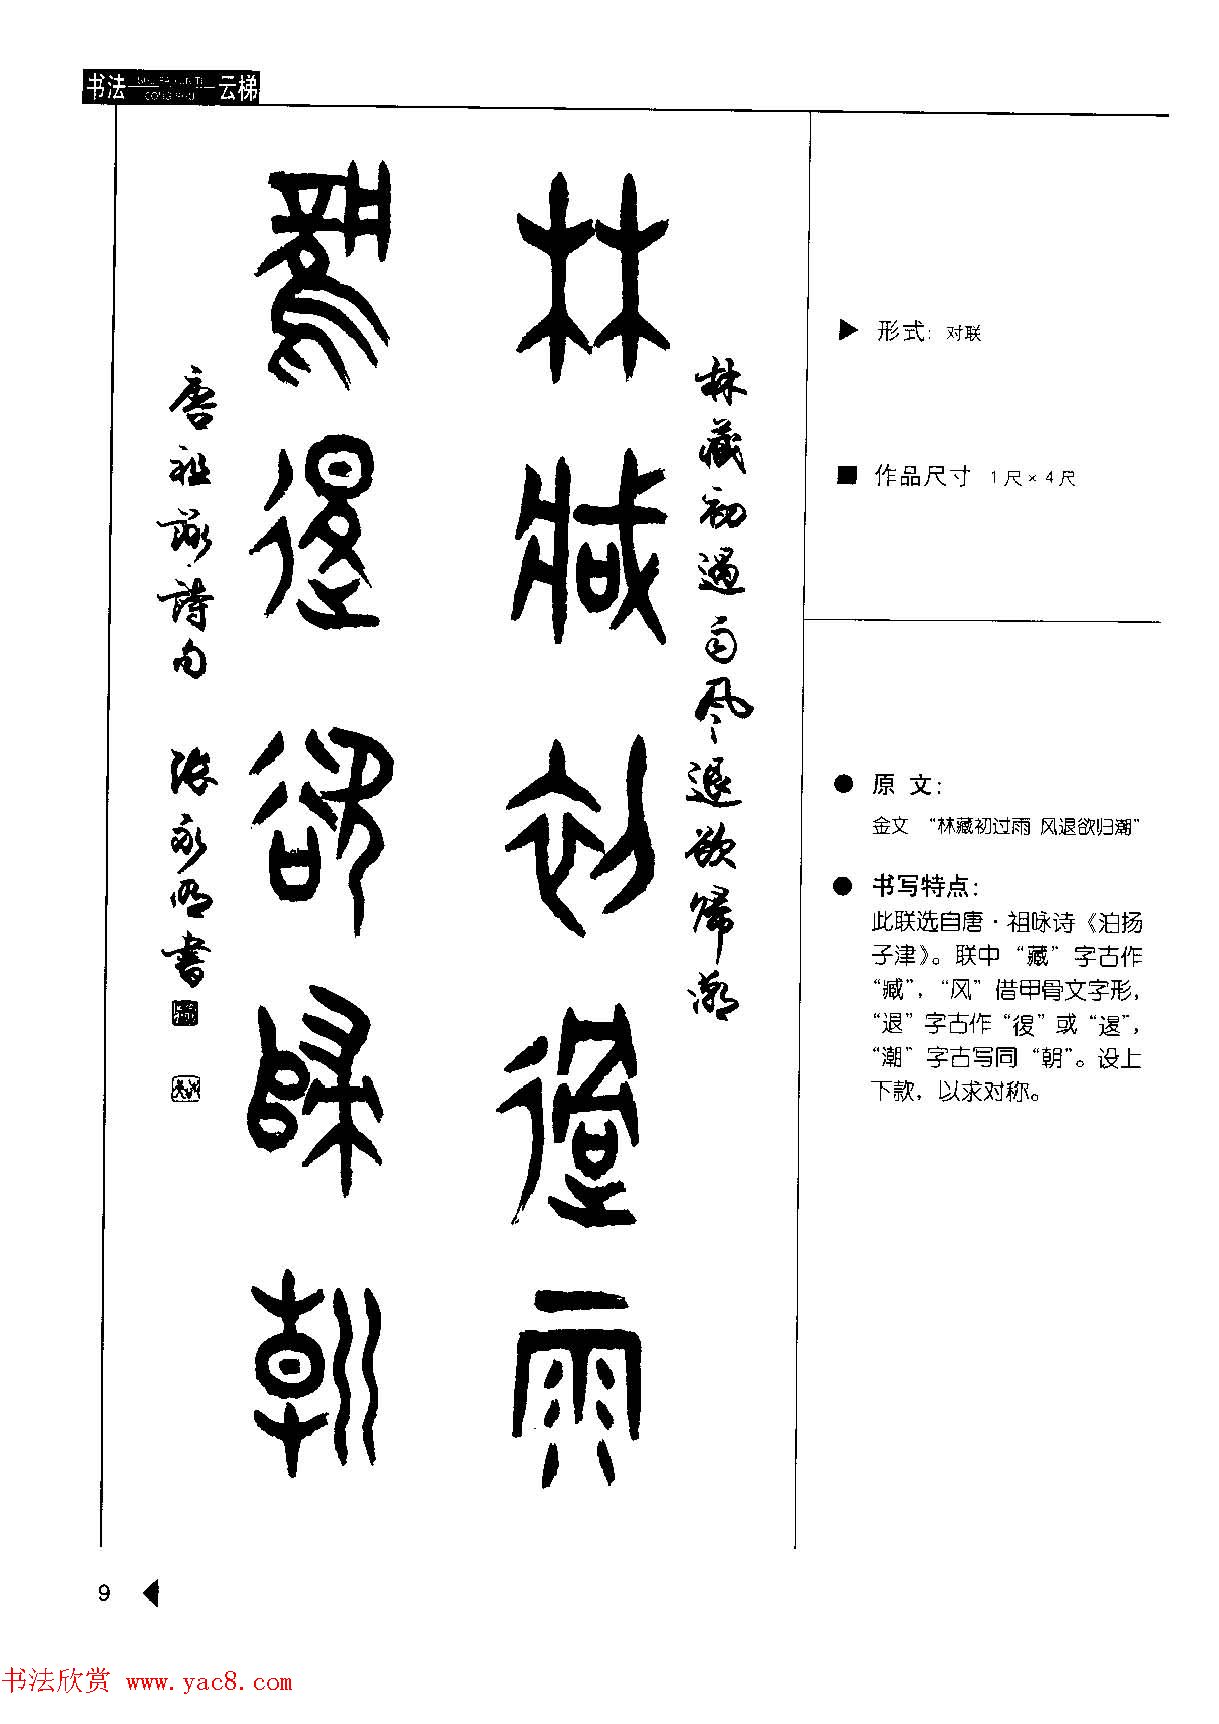 书法 云梯
林臧初過雨
風退欲歸朝
林藏初過雨風退欲歸潮
唐祖詠詩句 張永明書
形式：对联
作品尺寸 1尺×4尺
原 文：
金文 “林藏初过雨 风退欲归潮”
书写特点：
此联选自唐·祖咏诗《泊扬
子津》。联中“藏”字古作
“臧”，“风”借甲骨文字形，
“退”字古作“𢓴”或“𨓤”，
“潮”字古写同“朝”。设上
下款，以求对称。
9
书法欣赏 www.yac8.com